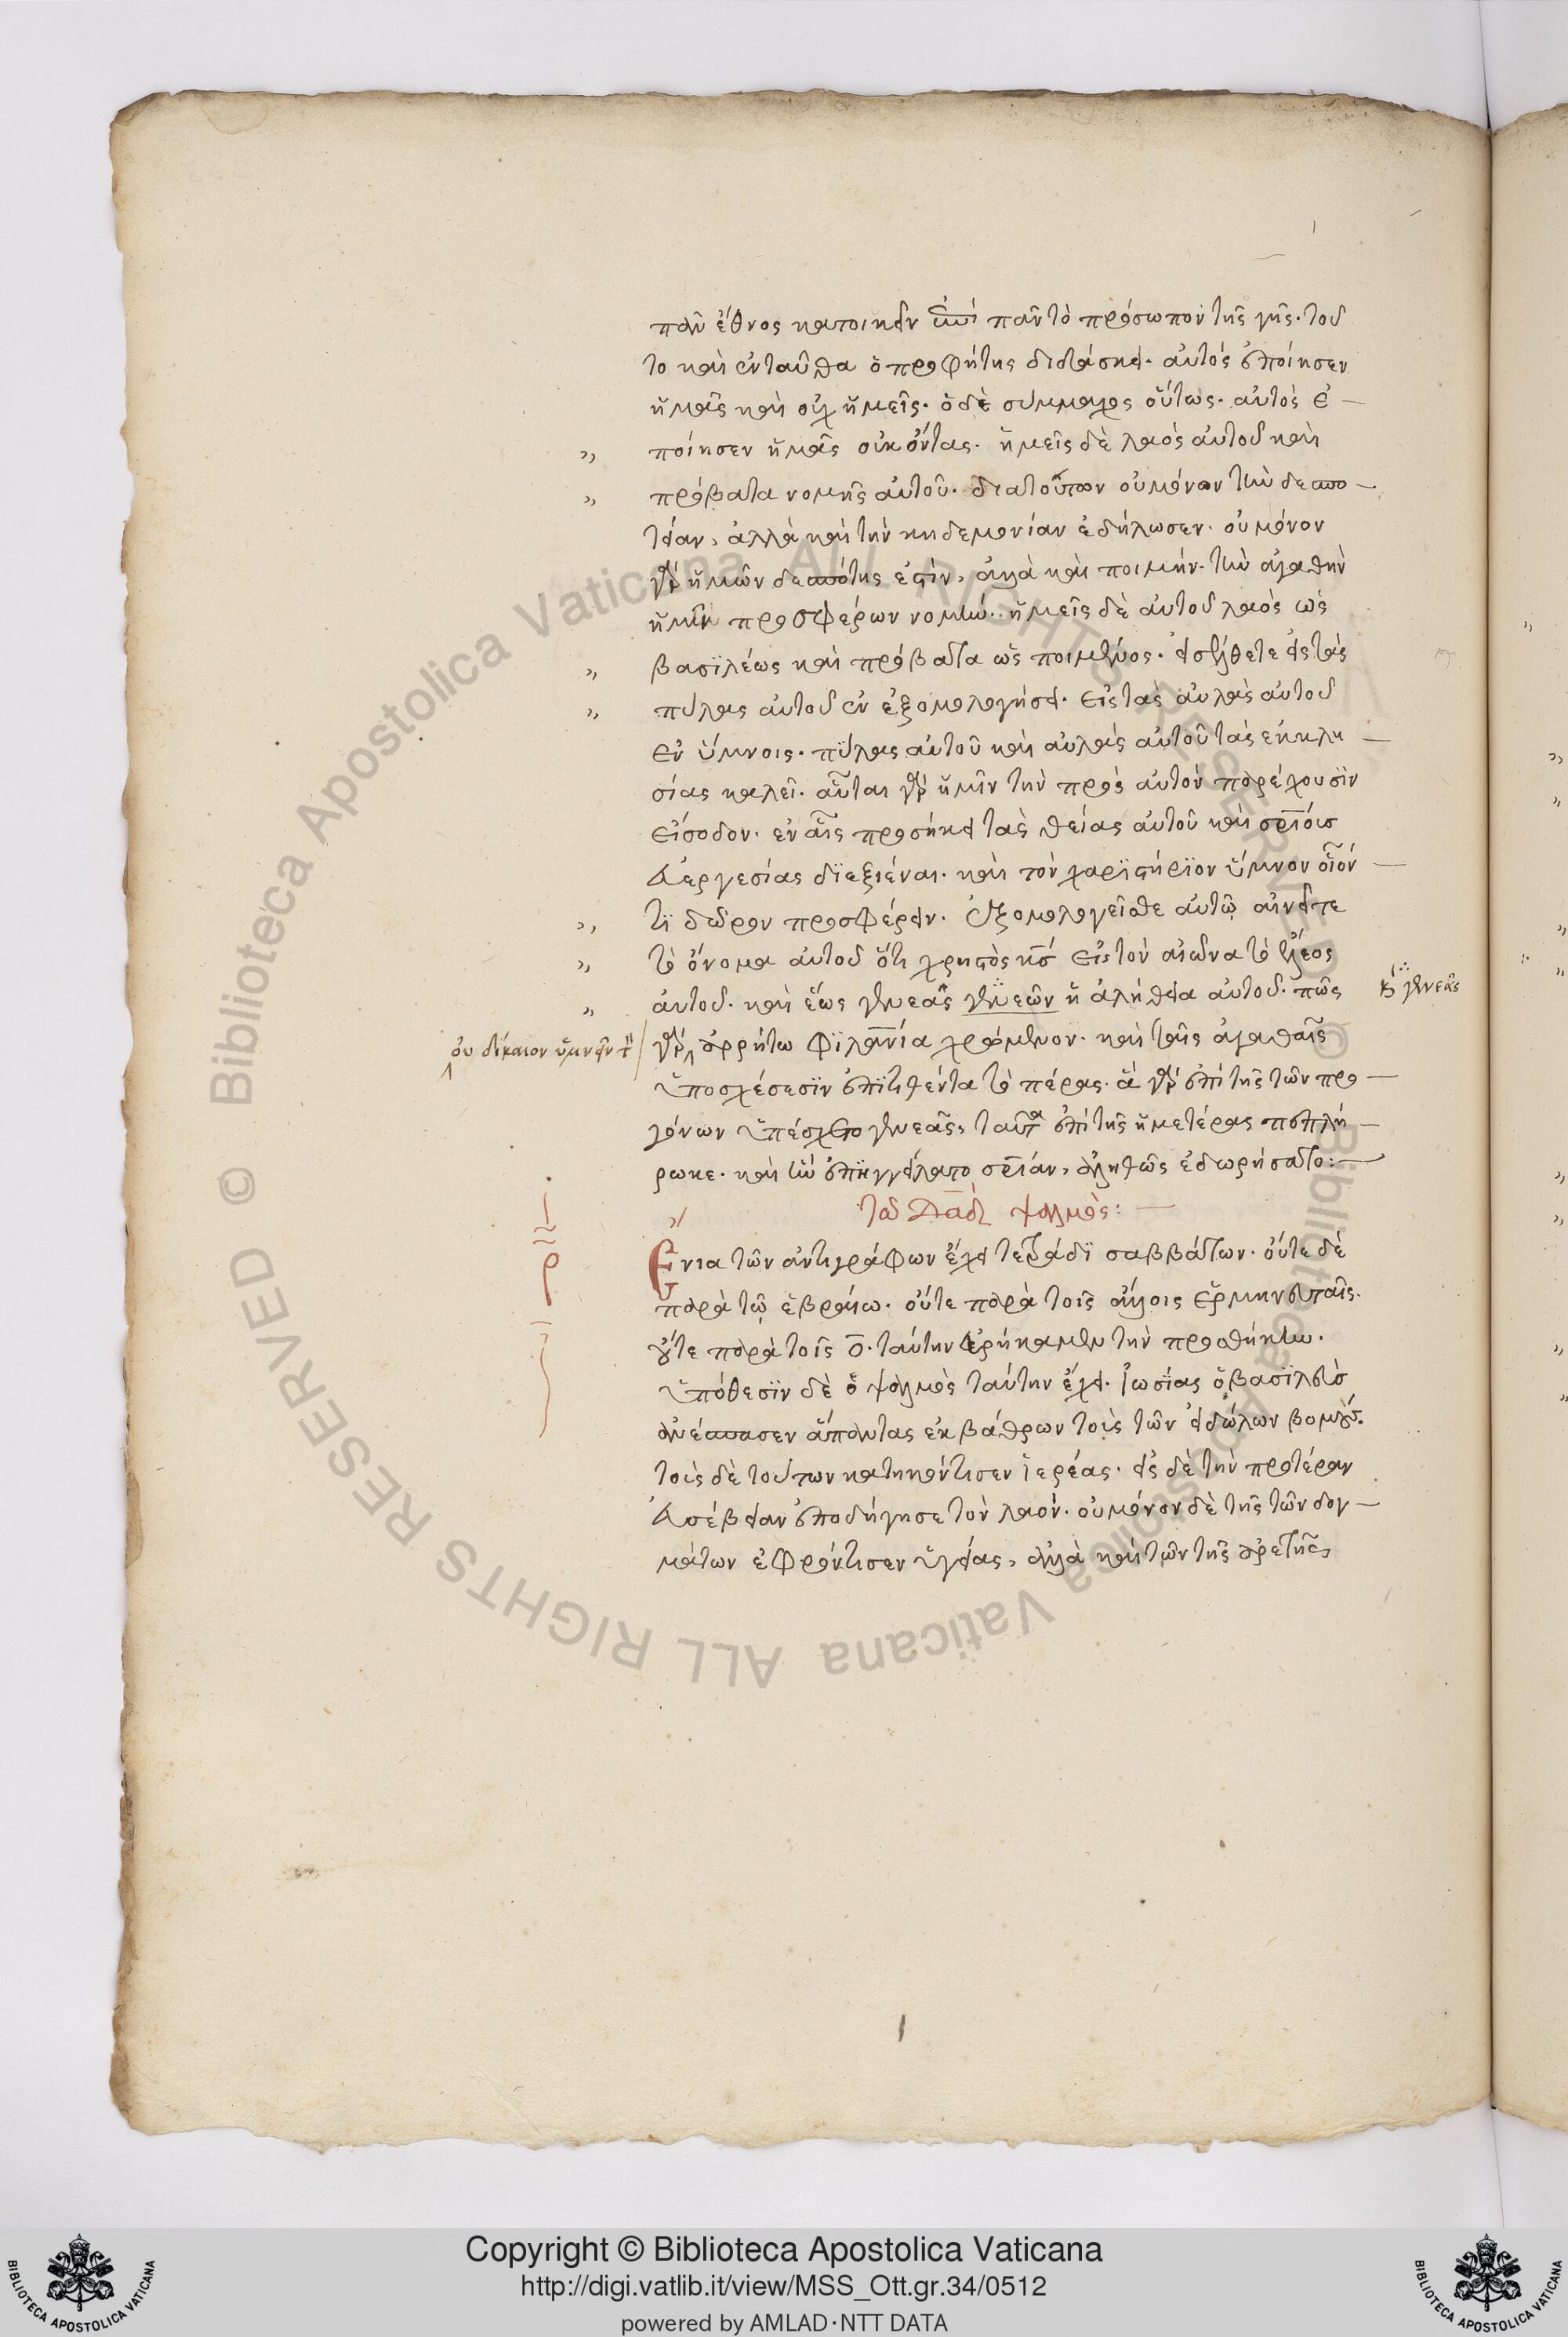 πᾶν ἔθνος κατοικεῖν ἐπὶ πᾶν τὸ πρόσωπον τῆς γῆς· τοῦ
το καὶ ἐνταῦθα ὁ προφήτης διδάσκει· αὐτὸς ἐποίησεν
ἡμᾶς καὶ οὐχ ἡμεῖς· ὁ δὲ σύμμαχος οὕτως· αὐτὸς ἐ —
" ποίησεν ἡμᾶς οὐκ ὄντας· ἡμεῖς δὲ λαὸς αὐτοῦ καὶ
" πρόβατα νομῆς αὐτοῦ· διὰ τούτων οὐ μόνον τὴν δεσπο —
τείαν, ἀλλὰ καὶ τὴν κηδεμονίαν ἐδήλωσεν· οὐ μόνον
γὰρ ἡμῶν δεσπότης ἐστὶν, ἀλλὰ καὶ ποιμήν· τὴν ἀγαθὴν
ἡμῖν προσφέρων νομήν· ἡμεῖς δὲ αὐτοῦ λαὸς ὡς
" βασϊλέως καὶ πρόβατα ὡς ποιμένος· εἰσέλθετε εἰς τὰς
" πύλας αὐτοῦ ἐν ἐξομολογήσει· εἰς τὰς αὐλὰς αὐτοῦ
ἐν ὕμνοις· πύλας αὐτοῦ καὶ αὐλὰς αὐτοῦ τὰς ἐκκλη —
σίας καλεῖ· αὗται γὰρ ἡμῖν τὴν πρὸς αὐτὸν παρέχουσϊν
εἴσοδον· ἐν αἷς προσήκει τὰς θείας αὐτοῦ καὶ σρϊοις
εὐεργεσίας δϊεξιέναι· καὶ τὸν χαρϊστήρϊον ὕμνον οἷόν —
" τϊ δῶρον προσφέρειν· ἐξομολογεῖσθε αὐτῷ αἰνεῖτε
" τὸ ὄνομα αὐτοῦ ὅτι χρηστὸς κς εἰς τὸν αἰῶνα τὸ ἔλεος
" αὐτοῦ· καὶ ἕως γενεᾶς γενεῶν ἡ ἀλήθεια αὐτοῦ· πῶς
κ γενεᾶς
οὐ δίκαιον ὑμνεῖν τ
γὰρ ἀρρήτω φϊλανία χρώμενον· καὶ ταῖς ἀγαθαῖς
ὑποσχέσεσϊν ἐπϊτιθέντα τὸ πέρας· ἃ γὰρ ἐπὶ τῆς τῶν προ —
γόνων ὑπέσχετο γενεᾶς, ταῦτα ἐπὶ τῆς ἡμετέρας πεπλή —
ρωκε· καὶ ἣν ἐπηγγείλατο σρίαν, ἀληθῶς ἐδωρήσατο: —
τῶ δαδ ψαλμὸς: —
ρ
Ἔνια τῶν ἀντιγράφων ἔχει τετράδϊ σαββάτων· οὔτε δὲ
παρὰ τῷ ἑβραίω· οὔτε παρὰ τοῖς ἄλλοις ἑρμηνευταῖς·
οὔτε παρὰ τοῖς ο· ταύτην εὑρήκαμεν τὴν προσθήκην·
ὑπόθεσϊν δὲ ὁ ψαλμὸς ταύτην ἔχει· ἰωσίας ὁ βασϊλεὺς
ἀνέσπασεν ἅπαντας ἐκ βάθρων τοὺς τῶν εἰδώλων βομούς·
τοὺς δὲ τούτων κατηκόντισεν ἱερέας· εἰς δὲ τὴν προτέραν
εὐσέβειαν ἐποδήγησε τὸν λαόν· οὐ μόνον δὲ τῆς τῶν δογ —
μάτων ἐφρόντισεν ὑγείας, ἀλλὰ καὶ τῶν τῆς ἀρετῆς
Copyright © Biblioteca Apostolica Vaticana
http://digi.vatlib.it/view/MSS_Ott.gr.34/0512
powered by AMLAD·NTT DATA
BIBLIOTECA APOSTOLICA VATICANA
BIBLIOTECA APOSTOLICA VATICANA
© Biblioteca Apostolica Vaticana ALL RIGHTS RESERVED
© Biblioteca Apostolica Vaticana ALL RIGHTS RESERVED